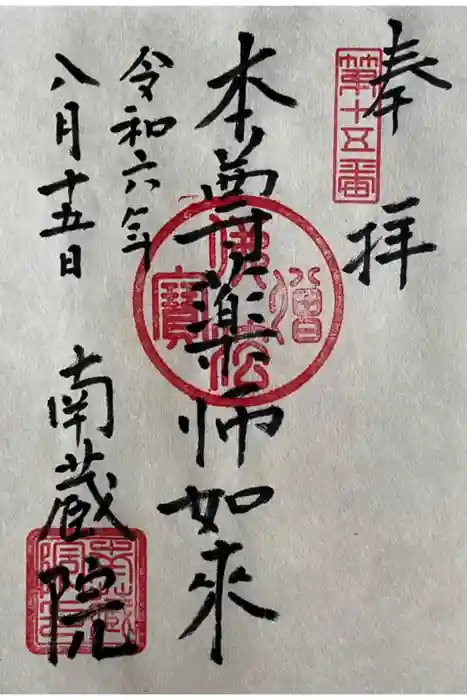 奉拝
第十五番
本尊薬師如来
佛法僧寳
令和六年
八月十五日
南蔵院